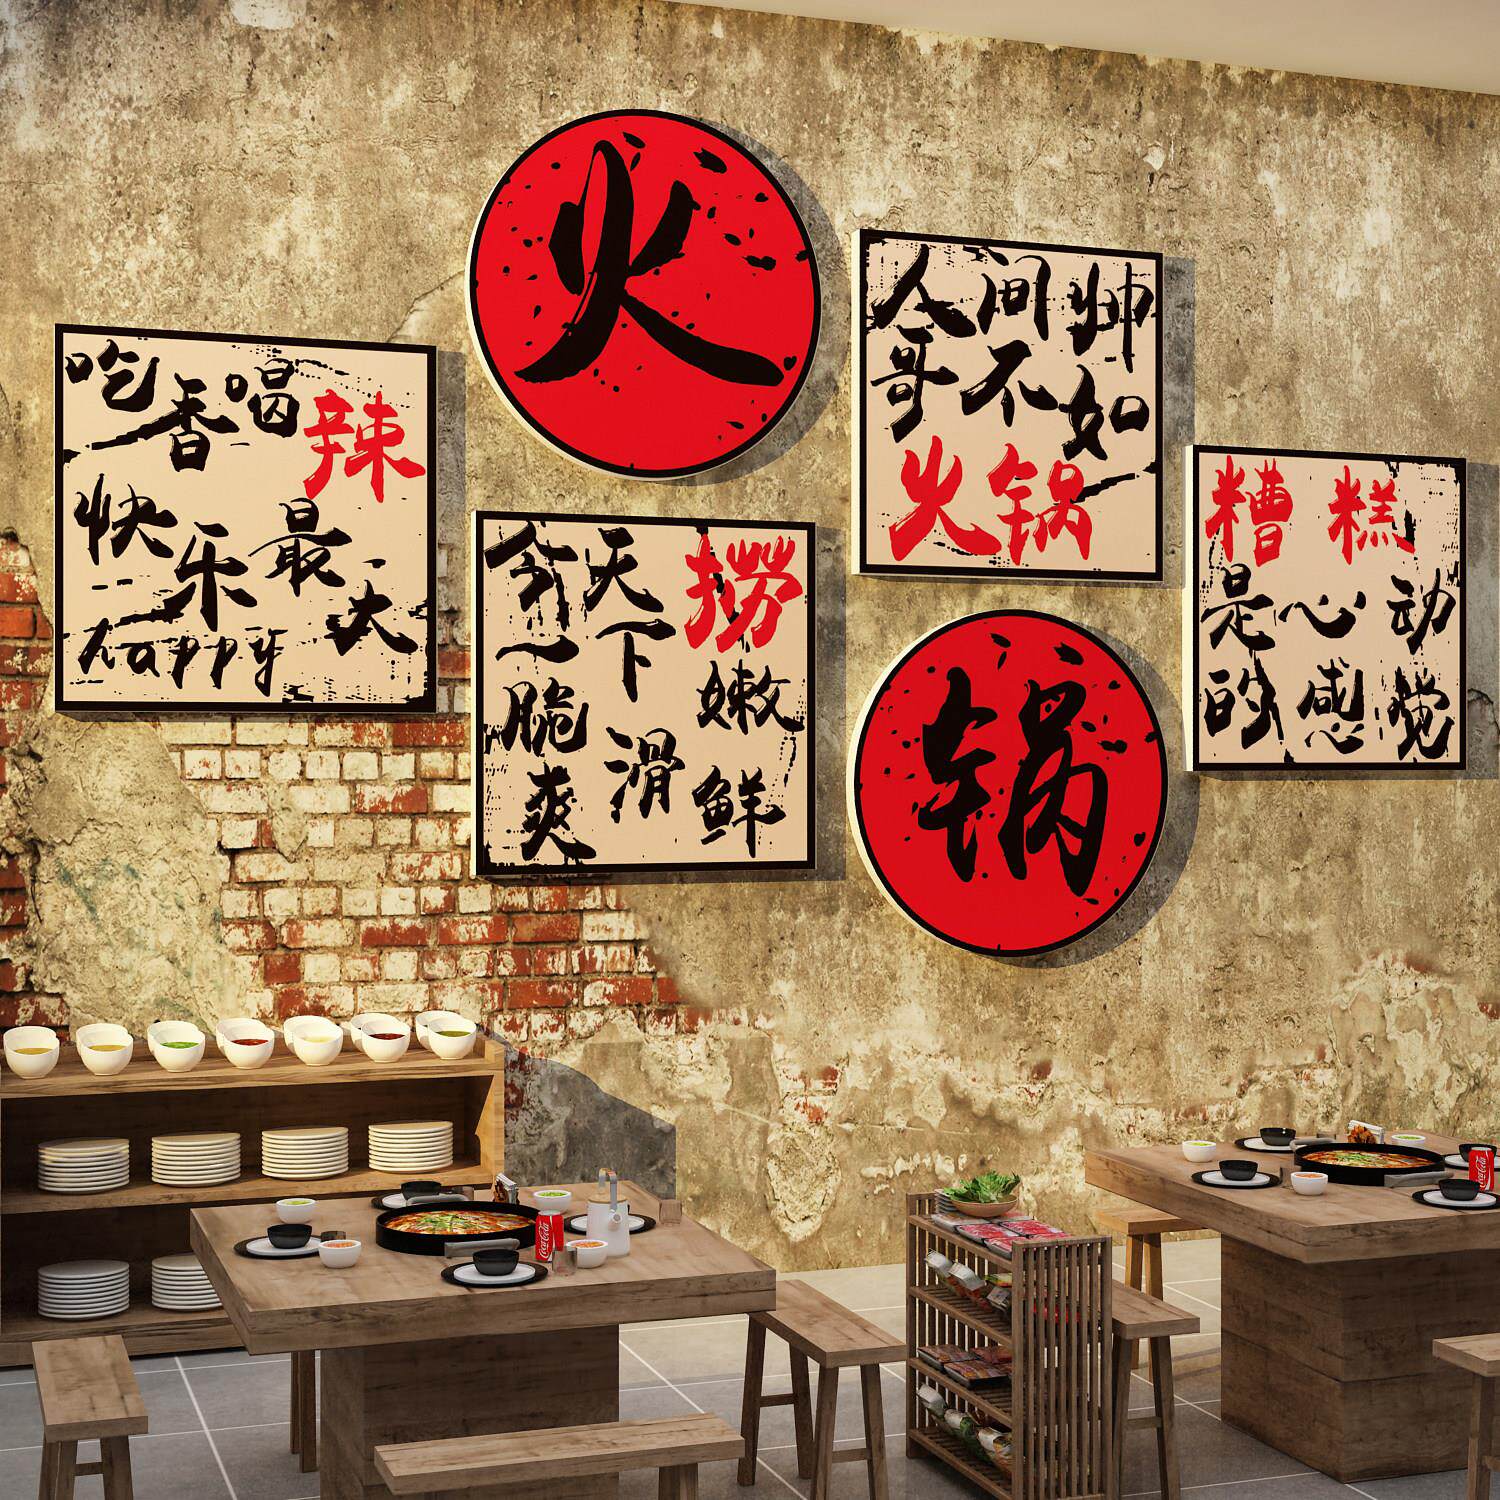 火
人间帅
哥不如
火锅
吃香喝辣
快乐最大
happy
糟糕
是心动
的感觉
今天捞
一下
脆嫩
爽滑鲜
锅
Coca-Cola
Coca-Cola